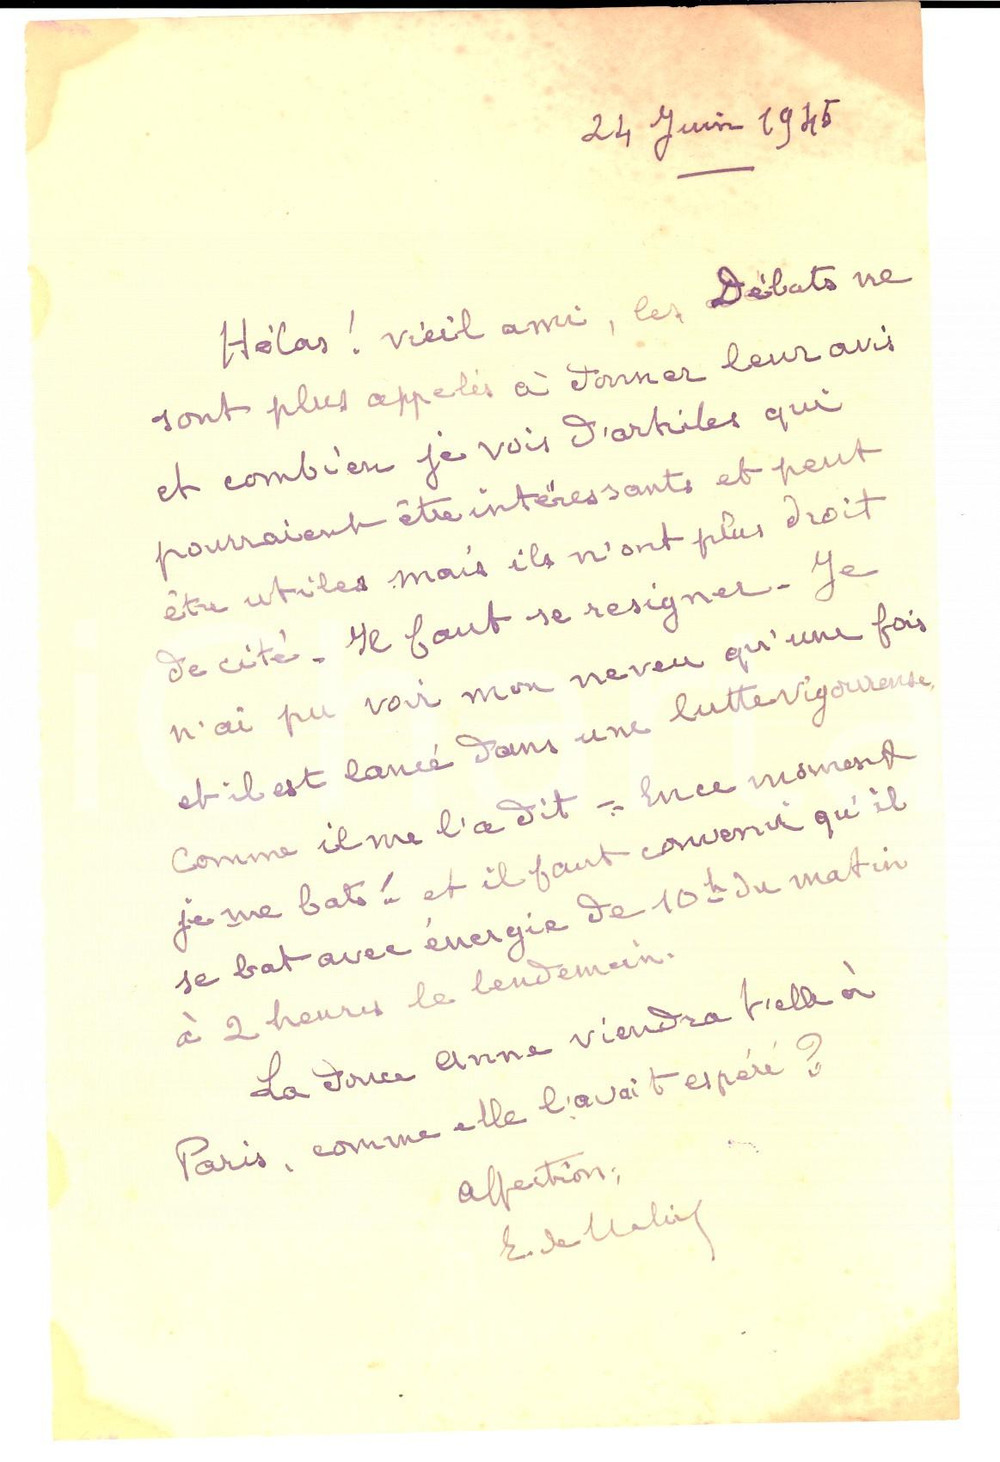 24 Juin 1945
Hélas ! vieil ami, les Débats ne
sont plus appelés à donner leur avis
et combien je vois d'artiles qui
pourraient être intéressants et peut
être utiles mais ils n'ont plus droit
de cité. Il faut se resigner - Je
n'ai pu voir mon neveu qu'une fois
et il est lancé dans une lutte vigoureuse,
comme il me l'a dit - En ce moment
je me bats ! et il faut convenir qu'il
se bat avec énergie de 10h du matin
à 2 heures le lendemain.
La douce Anne viendra t'elle à
Paris, comme elle l'avait espéré ?
Affection,
E. de